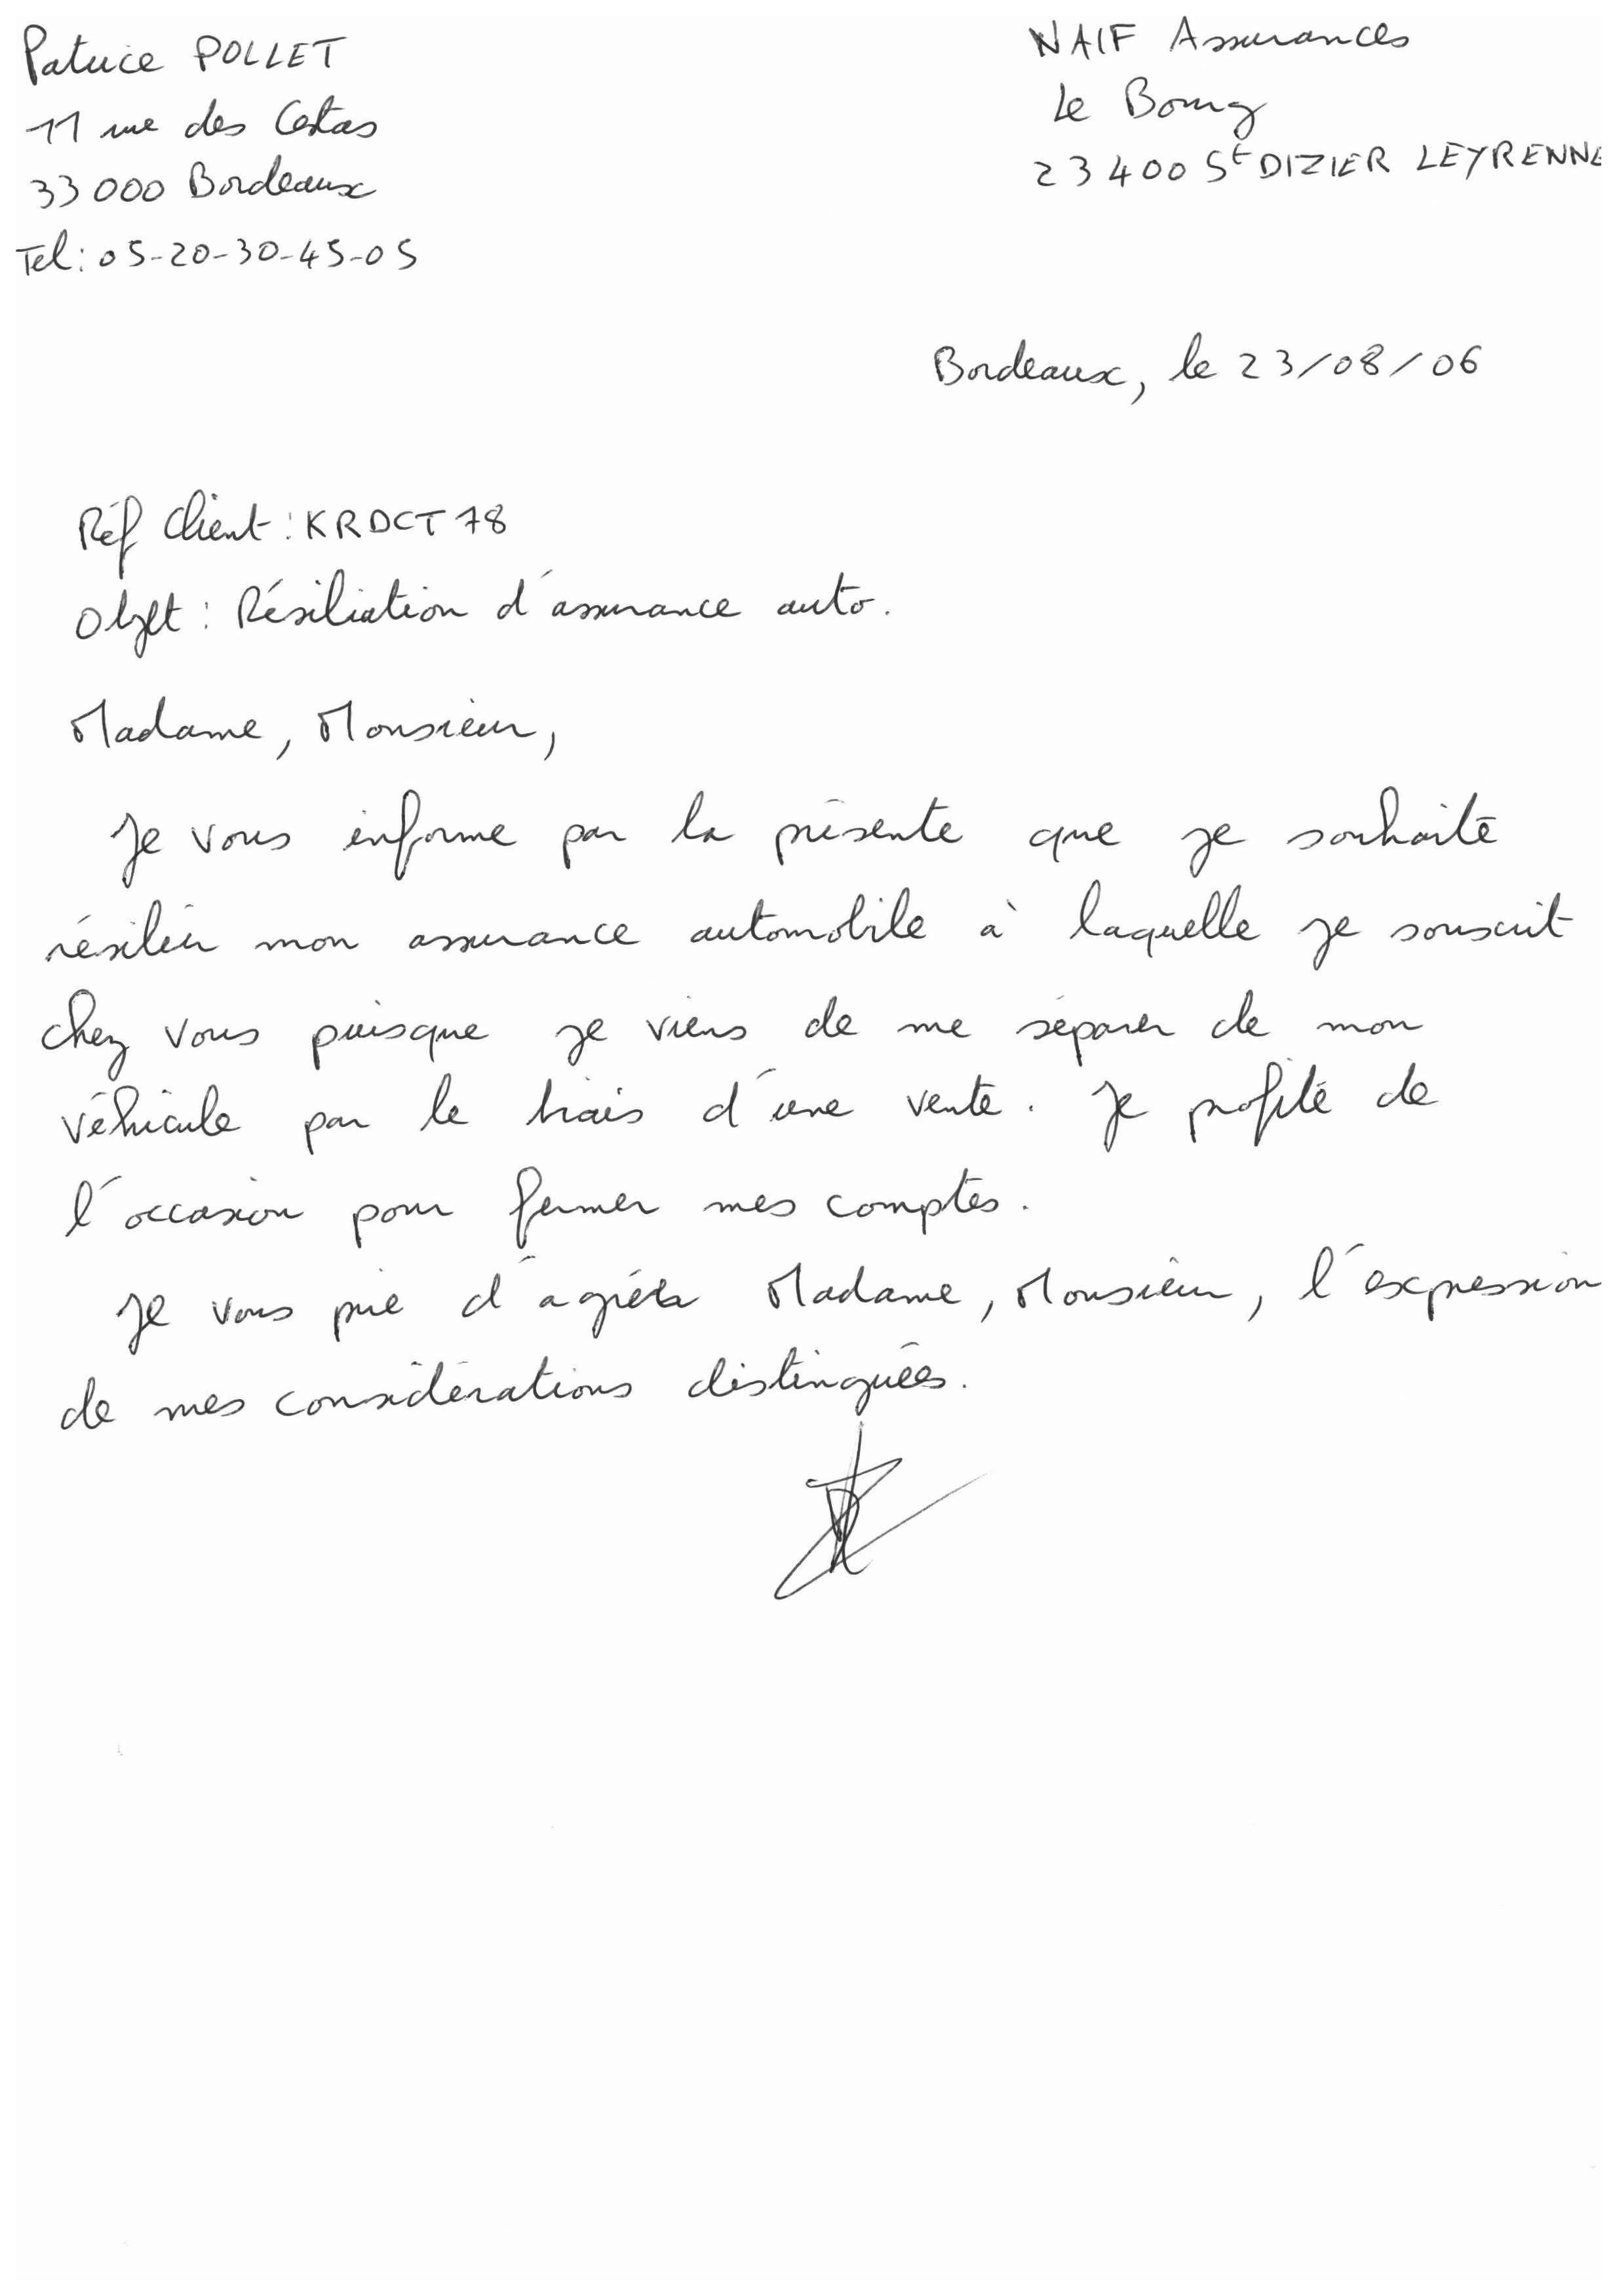 Patrice POLLET
11 rue des Cestas
33000 Bordeaux
Tel: 05-20-30-45-05
NAIF Assurances
Le Bourg
23400 St DIZIER LEYRENNE
Bordeaux, le 23/08/06
Réf Client : KRDCT78
Objet : Résiliation d'assurance auto.
Madame, Monsieur,
Je vous informe par la présente que je souhaite
résilier mon assurance automobile à laquelle je souscrit
chez vous puisque je viens de me séparer de mon
véhicule par le biais d'une vente. Je profite de
l'occasion pour fermer mes comptes.
Je vous prie d'agréer Madame, Monsieur, l'expression
de mes considérations distinguées.